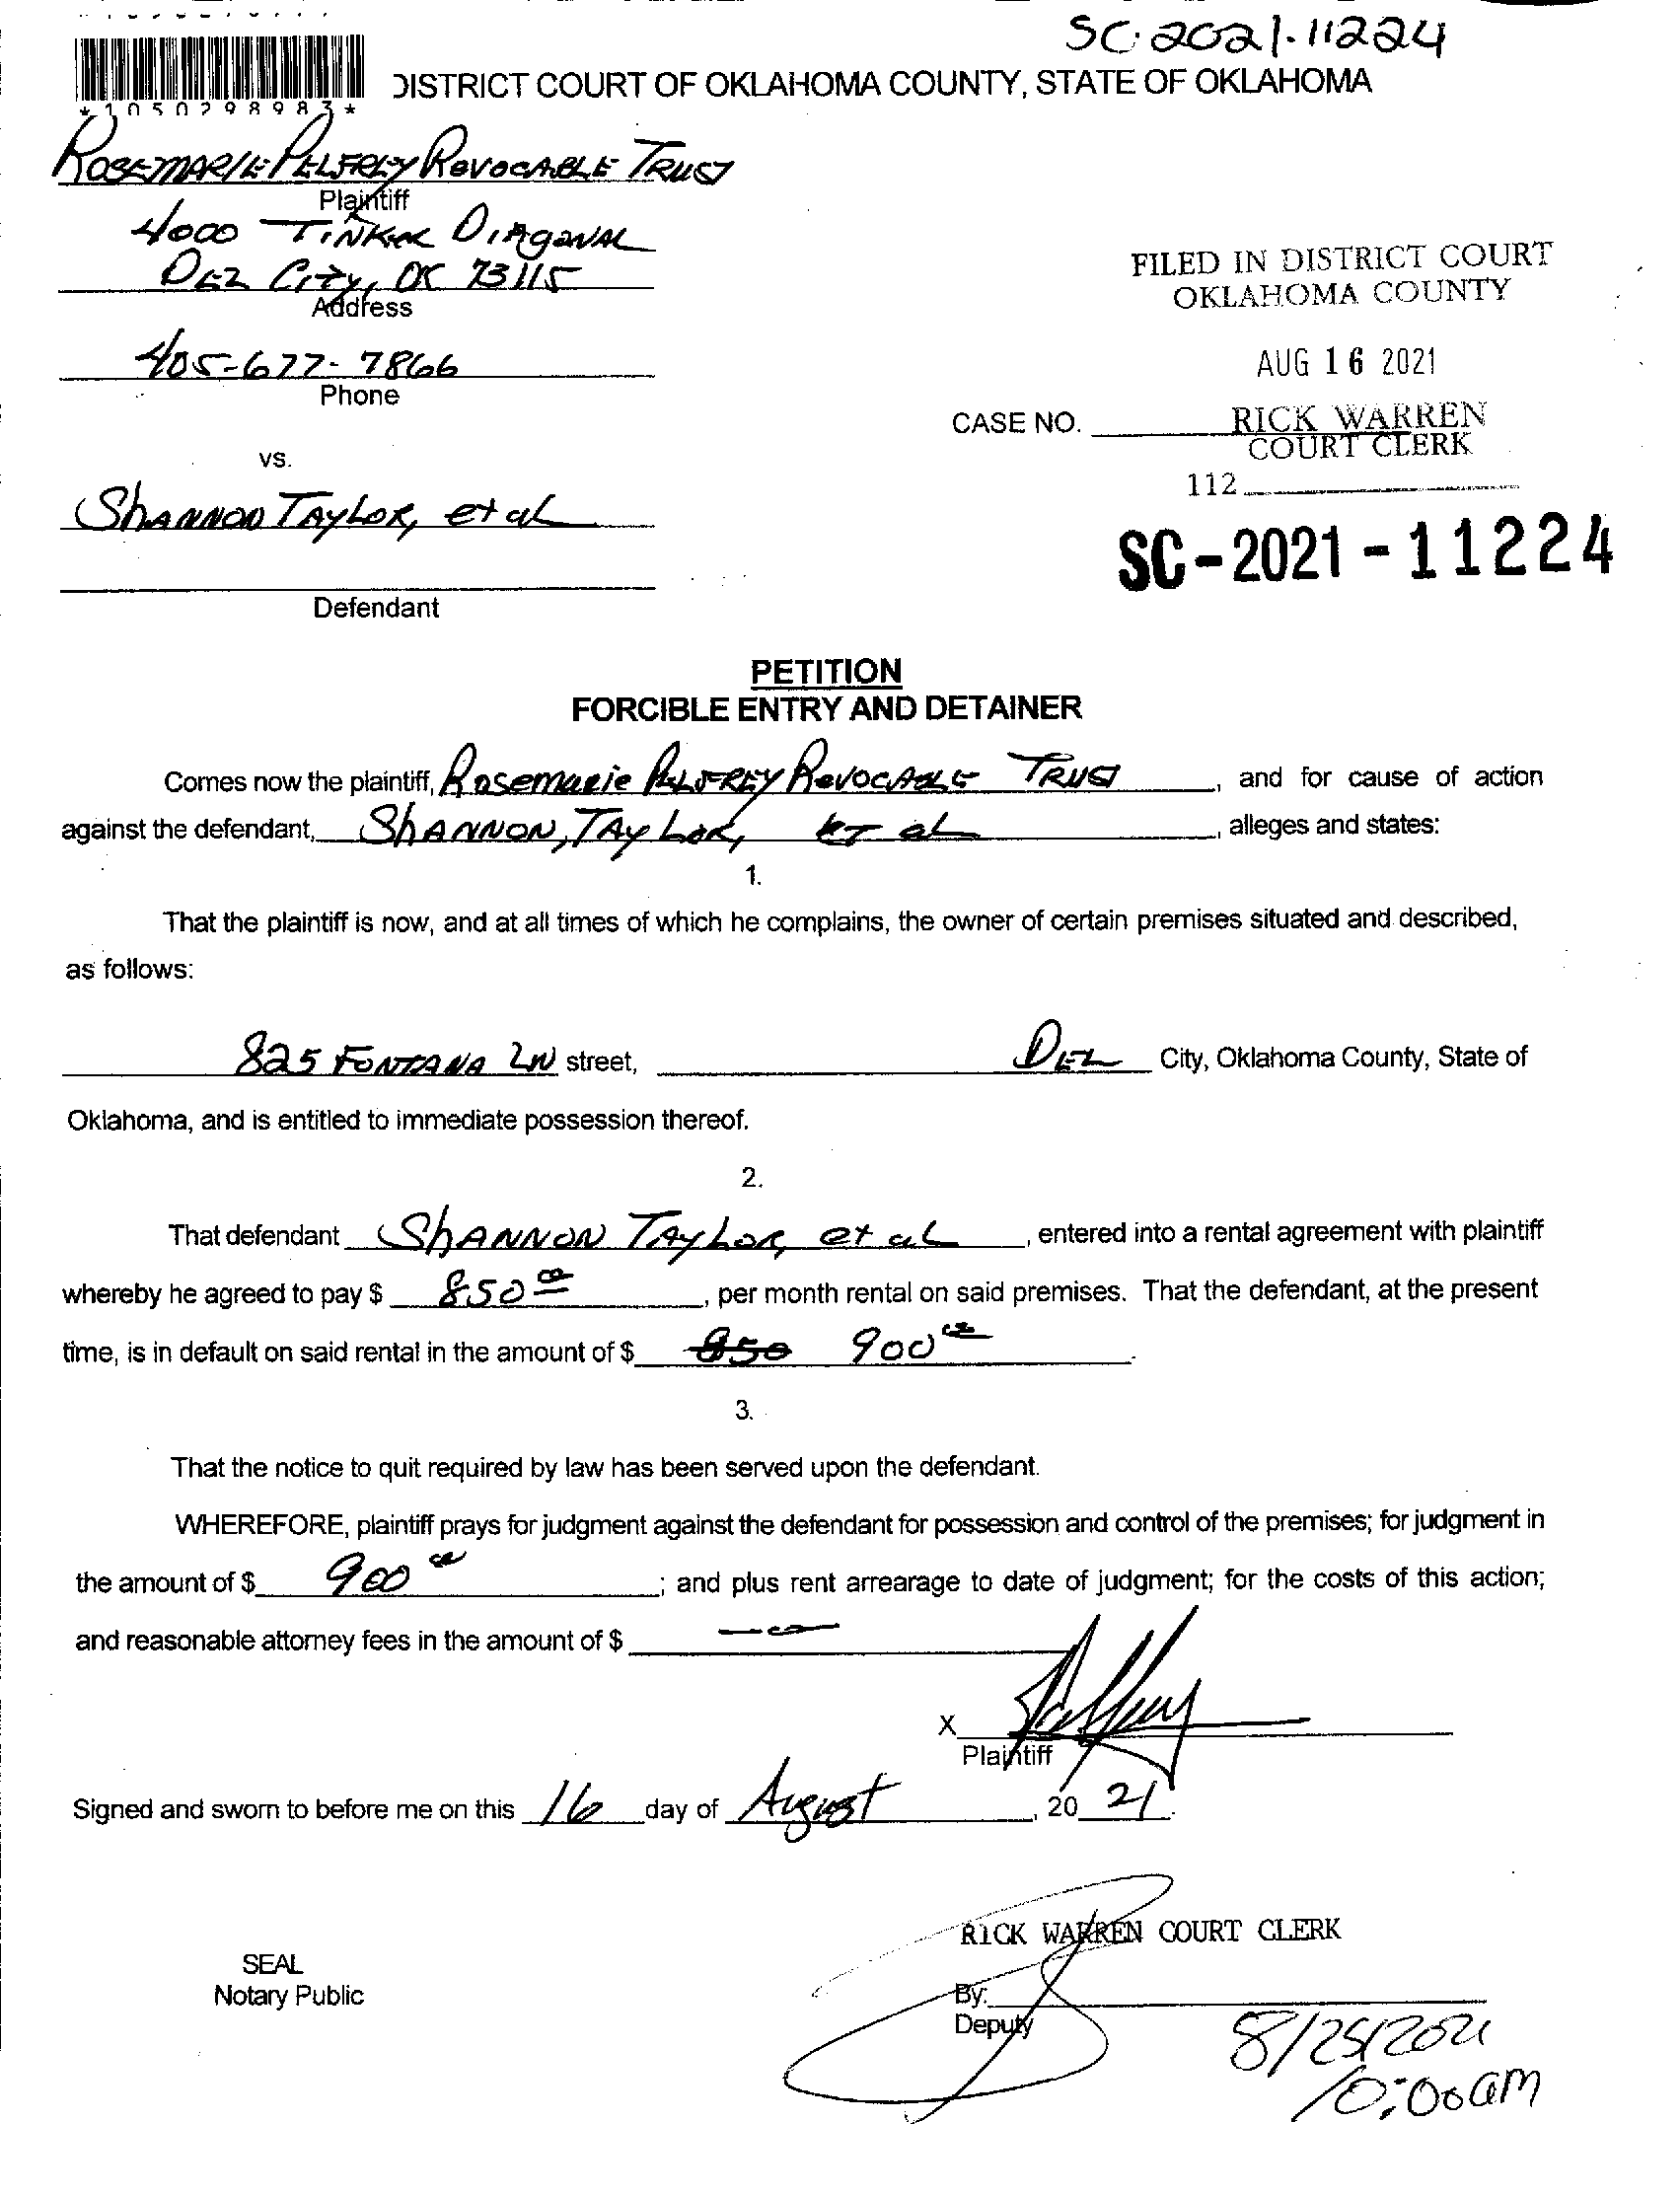 SC-2021-11224
*1050298983*
DISTRICT COURT OF OKLAHOMA COUNTY, STATE OF OKLAHOMA
ROSEMARIE PELFREY REVOCABLE TRUST
Plaintiff
4000 TINKER DIAGONAL
DEL CITY, OK 73115
Address
FILED IN DISTRICT COURT
OKLAHOMA COUNTY
405-677-7866
Phone
AUG 16 2021
CASE NO.
RICK WARREN
COURT CLERK
vs.
112
SHANNON TAYLOR, et al
SC-2021-11224
Defendant
PETITION
FORCIBLE ENTRY AND DETAINER
Comes now the plaintiff, Rosemarie PELFREY REVOCABLE TRUST, and for cause of action
against the defendant, SHANNON, TAYLOR, ET al, alleges and states:
1.
That the plaintiff is now, and at all times of which he complains, the owner of certain premises situated and described,
as follows:
825 FONTANA LN street, DEL City, Oklahoma County, State of
Oklahoma, and is entitled to immediate possession thereof.
2.
That defendant SHANNON TAYLOR, et al, entered into a rental agreement with plaintiff
whereby he agreed to pay $ 850 00, per month rental on said premises. That the defendant, at the present
time, is in default on said rental in the amount of $ 850 900 00.
3.
That the notice to quit required by law has been served upon the defendant.
WHEREFORE, plaintiff prays for judgment against the defendant for possession and control of the premises; for judgment in
the amount of $ 900 00; and plus rent arrearage to date of judgment; for the costs of this action;
and reasonable attorney fees in the amount of $ —0—
X
Plaintiff
Signed and sworn to before me on this 16 day of August, 20 21.
RICK WARREN COURT CLERK
SEAL
Notary Public
By:
Deputy
8/25/2021
10:00am